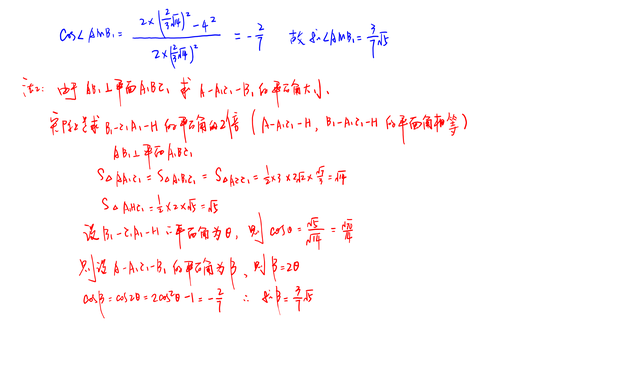 cos∠AMB₁ = (2×(2/3√14)² - 4²) / (2×(2/3√14)²) = -2/7 故 sin∠AMB₁ = 3/7√5
法2: 由于 AB₁⊥平面A₁BC₁ 求 A-A₁C₁-B₁ 的平面角大小,
实际是求 B₁-C₁A₁-H 的平面角的2倍 (A-A₁C₁-H, B₁-A₁C₁-H 的平面角相等)
AB₁⊥平面A₁BC₁
S△AA₁C₁ = S△A₁B₁C₁ = ½×3×2√2× = √14
S△A₁HC₁ = ½×2×√5 = √5
设 B₁-C₁A₁-H 平面角为θ, 则 cosθ = √5/√14 = √70/14
则设 A-A₁C₁-B₁ 的平面角为β, 则 β=2θ
cosβ = cos2θ = 2cos²θ-1 = -2/7 ∴ sinβ = 3/7√5